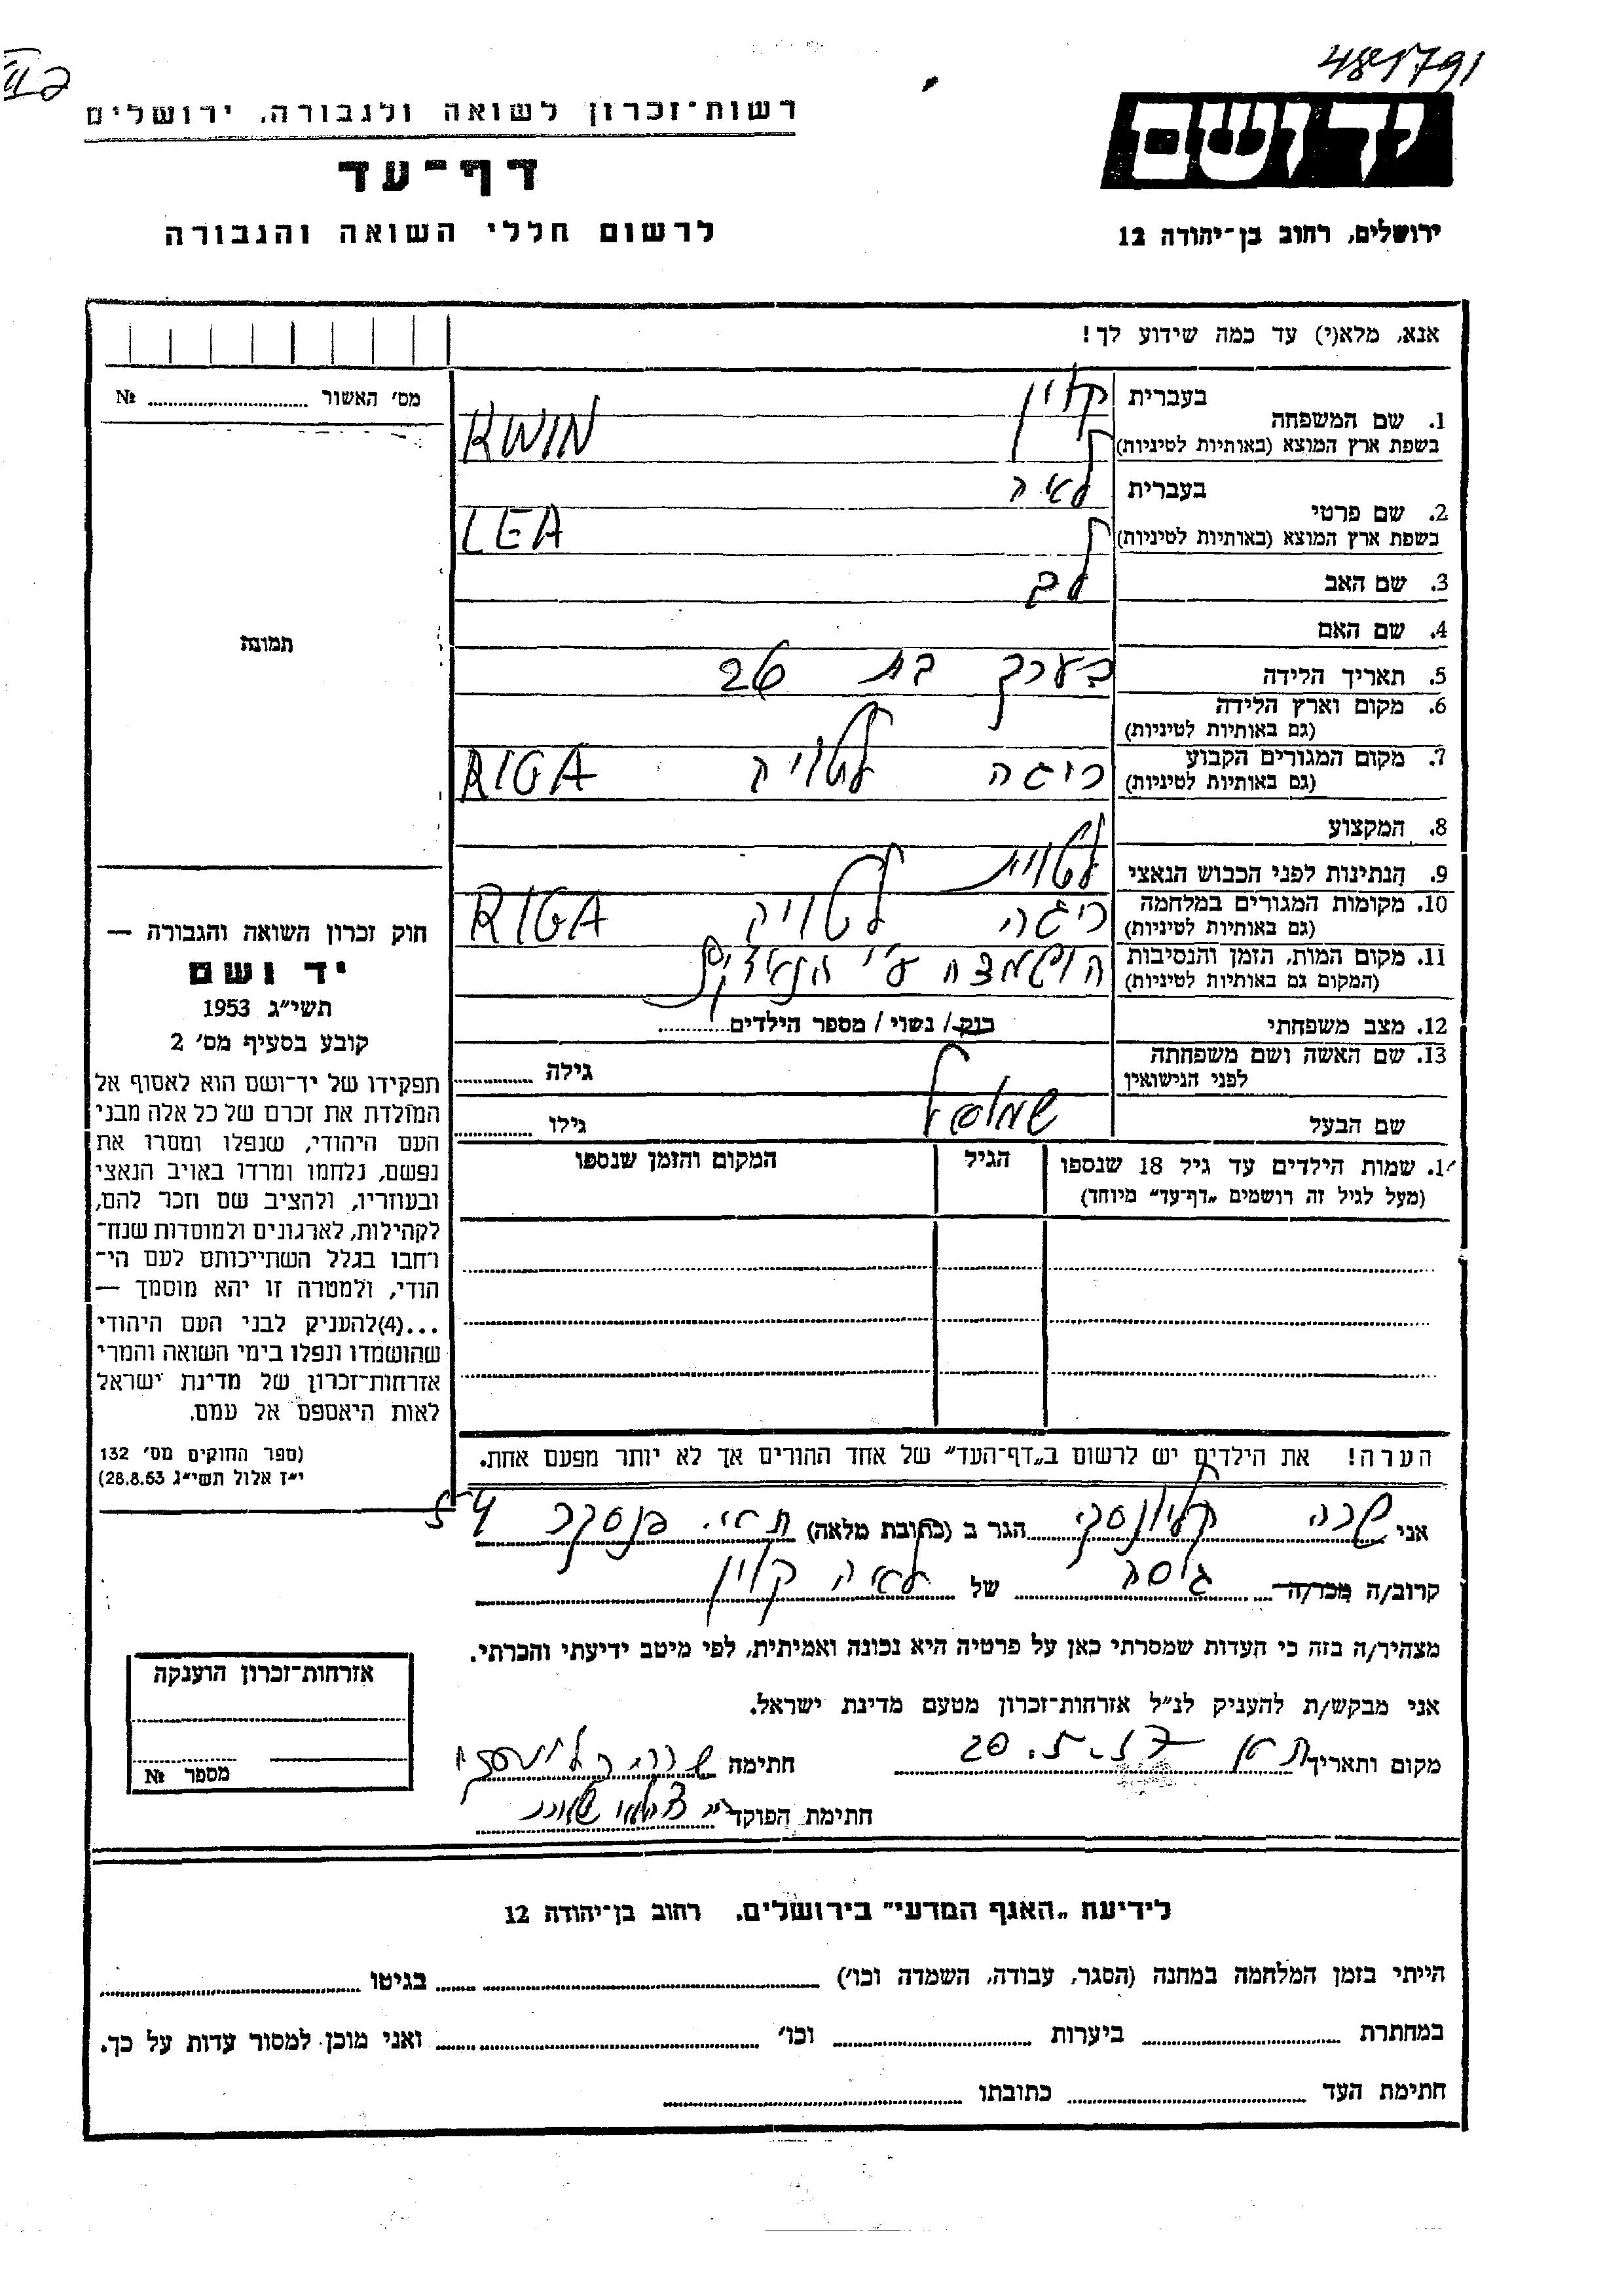 481791
רשות־זכרון לשואה ולגבורה, ירושלים
יד ושם
דף־עד
ירושלים, רחוב בן־יהודה 12
לרשום חללי השואה והגבורה
אנא, מלא(י) עד כמה שידוע לך!
מס׳ האשור № 
1. שם המשפחה
בעברית קוין
בשפת ארץ המוצא (באותיות לטיניות) KWIN
2. שם פרטי
בעברית לאה
בשפת ארץ המוצא (באותיות לטיניות) LEA
3. שם האב לב
4. שם האם
תמונה
5. תאריך הלידה בערך בת 26
6. מקום וארץ הלידה
(גם באותיות לטיניות)
7. מקום המגורים הקבוע ריגה לטויה RIGA
(גם באותיות לטיניות)
8. המקצוע
9. הנתינות לפני הכבוש הנאצי לטוית
10. מקומות המגורים במלחמה ריגה לטויה RIGA
(גם באותיות לטיניות)
11. מקום המות, הזמן והנסיבות הושמדה ע״י הנאצים
(המקום גם באותיות לטיניות)
12. מצב משפחתי רווק / נשוי / מספר הילדים
13. שם האשה ושם משפחתה
לפני הנישואין גילה
שם הבעל שמואל גילו
1. שמות הילדים עד גיל 18 שנספו הגיל המקום והזמן שנספו
(מעל לגיל זה רושמים „דף־עד״ מיוחד)
חוק זכרון השואה והגבורה —
יד ושם
תשי״ג 1953
קובע בסעיף מס׳ 2
תפקידו של יד־ושם הוא לאסוף אל
המולדת את זכרם של כל אלה מבני
העם היהודי, שנפלו ומסרו את
נפשם, נלחמו ומרדו באויב הנאצי
ובעוזריו, ולהציב שם וזכר להם,
לקהילות, לארגונים ולמוסדות שנח־
רחבו בגלל השתייכותם לעם הי־
הודי, ולמטרה זו יהא מוסמך —
...(4)להעניק לבני העם היהודי
שהושמדו ונפלו בימי השואה והמרי
אזרחות־זכרון של מדינת ישראל
לאות היאספם אל עמם.
(ספר החוקים מס׳ 132
י״ז אלול תשי״ג 28.8.53)
הערה! את הילדים יש לרשום ב„דף־העד״ של אחד ההורים אך לא יותר מפעם אחת.
אני שרה קליונסקי הגר ב (כתובת מלאה) ת״א. פנסקר 54
קרוב/ה מכר/ה גיסה של לאה קוין
מצהיר/ה בזה כי העדות שמסרתי כאן על פרטיה היא נכונה ואמיתית, לפי מיטב ידיעתי והכרתי.
אני מבקש/ת להעניק לנ״ל אזרחות־זכרון מטעם מדינת ישראל.
מקום ותאריך חתימה שרה קליונסקי
חתימת הפוקד
אזרחות־זכרון הוענקה
מספר №
לידיעת „האגף המדעי״ בירושלים, רחוב בן־יהודה 12
הייתי בזמן המלחמה במחנה (הסגר, עבודה, השמדה וכו׳) בגיטו
במחתרת ביערות וכו׳ ואני מוכן למסור עדות על כך.
חתימת העד כתובתו